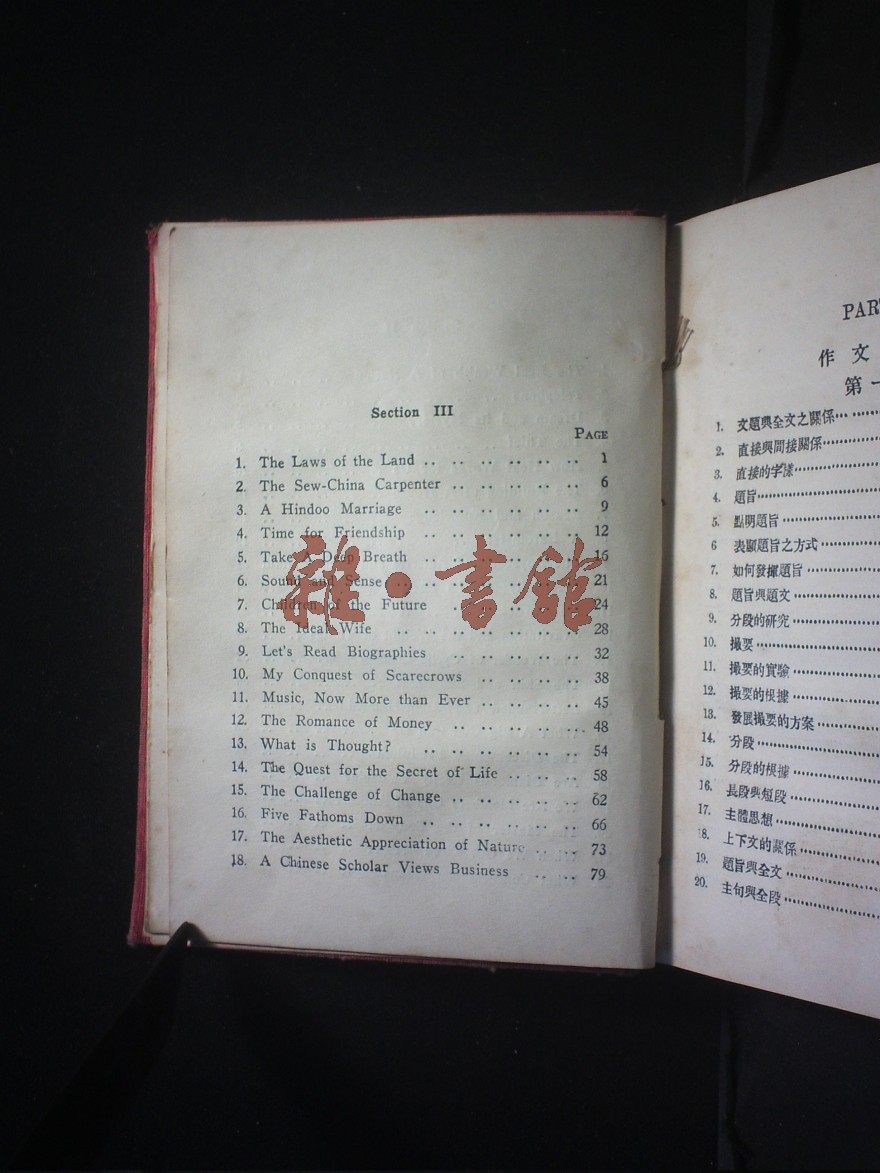 Section III
PAGE
1. The Laws of the Land .. .. .. .. .. .. 1
2. The Sew-China Carpenter .. .. .. .. .. 6
3. A Hindoo Marriage .. .. .. .. .. .. 9
4. Time for Friendship .. .. .. .. .. .. 12
5. Take A Deep Breath .. .. .. .. .. .. 16
6. Sound and Sense .. .. .. .. .. .. .. 21
7. Children of the Future .. .. .. .. .. 24
8. The Ideal Wife .. .. .. .. .. .. .. 28
9. Let's Read Biographies .. .. .. .. .. 32
10. My Conquest of Scarecrows .. .. .. .. 38
11. Music, Now More than Ever .. .. .. .. 45
12. The Romance of Money .. .. .. .. ... 48
13. What is Thought? .. .. .. .. .. .. 54
14. The Quest for the Secret of Life .. .. .. 58
15. The Challenge of Change .. .. .. .. .. 62
16. Five Fathoms Down .. .. .. .. .. .. 66
17. The Aesthetic Appreciation of Nature .. .. 73
18. A Chinese Scholar Views Business .. .. 79
雜·書館
PAR
作文
第一
1. 文題與全文之關係
2. 直接與間接關係
3. 直接的字樣
4. 題旨
5. 點明題旨
6 表顯題旨之方式
7. 如何發揮題旨
8. 題旨與題文
9. 分段的研究
10. 撮要
11. 撮要的實驗
12. 撮要的根據
13. 發展撮要的方案
14. 分段
15. 分段的根據
16. 長段與短段
17. 主體思想
18. 上下文的關係
19. 題旨與全文
20. 主句與全段